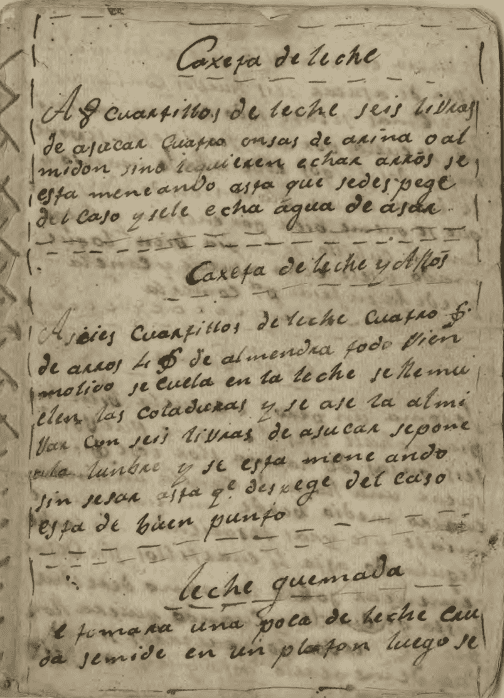 Caxeta de leche
A 8 cuartillos de leche seis livras
de asucar cuatro onsas de arina o al
midon sino le quieren echar arros se
esta meneando asta que sedespege
del caso y sele echa água de ásar
Caxeta de leche y Arrós
A seies cuartillos de leche cuatro
de arros 4 de almendra todo vien
molido se cuela en la leche se Remu
elen las coladuras y se ase la almi
var con seis livras de asucar sepone
a la lunbre y se esta mene ando
sin sesar asta qe. despege del caso
esta de buen punto
leche quemada
e tomara una poca de leche cru
da semide en un platon luego se